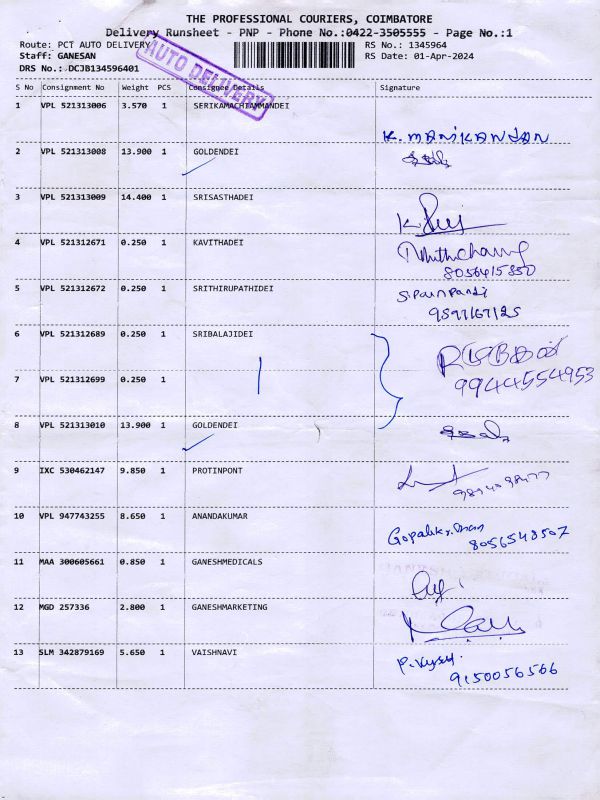 THE PROFESSIONAL COURIERS, COIMBATORE
Delivery Runsheet - PNP - Phone No.:0422-3505555 - Page No.:1
Route: PCT AUTO DELIVERY RS No.: 1345964
Staff: GANESAN RS Date: 01-Apr-2024
DRS No.: DCJB134596401
AUTO DELIVERY
S No Consignment No Weight PCS Consignee Details Signature
1 VPL 521313006 3.570 1 SERIKAMACHIAMMANDEI
K. MANIKANDAN
2 VPL 521313008 13.900 1 GOLDENDEI
3 VPL 521313009 14.400 1 SRISASTHADEI
4 VPL 521312671 0.250 1 KAVITHADEI
8056415850
5 VPL 521312672 0.250 1 SRITHIRUPATHIDEI
6 VPL 521312689 0.250 1 SRIBALAJIDEI
9944554953
7 VPL 521312699 0.250 1
8 VPL 521313010 13.900 1 GOLDENDEI
9 IXC 530462147 9.850 1 PROTINPONT
10 VPL 947743255 8.650 1 ANANDAKUMAR
8056548507
11 MAA 300605661 0.850 1 GANESHMEDICALS
12 MGD 257336 2.800 1 GANESHMARKETING
13 SLM 342879169 5.650 1 VAISHNAVI
9150056566